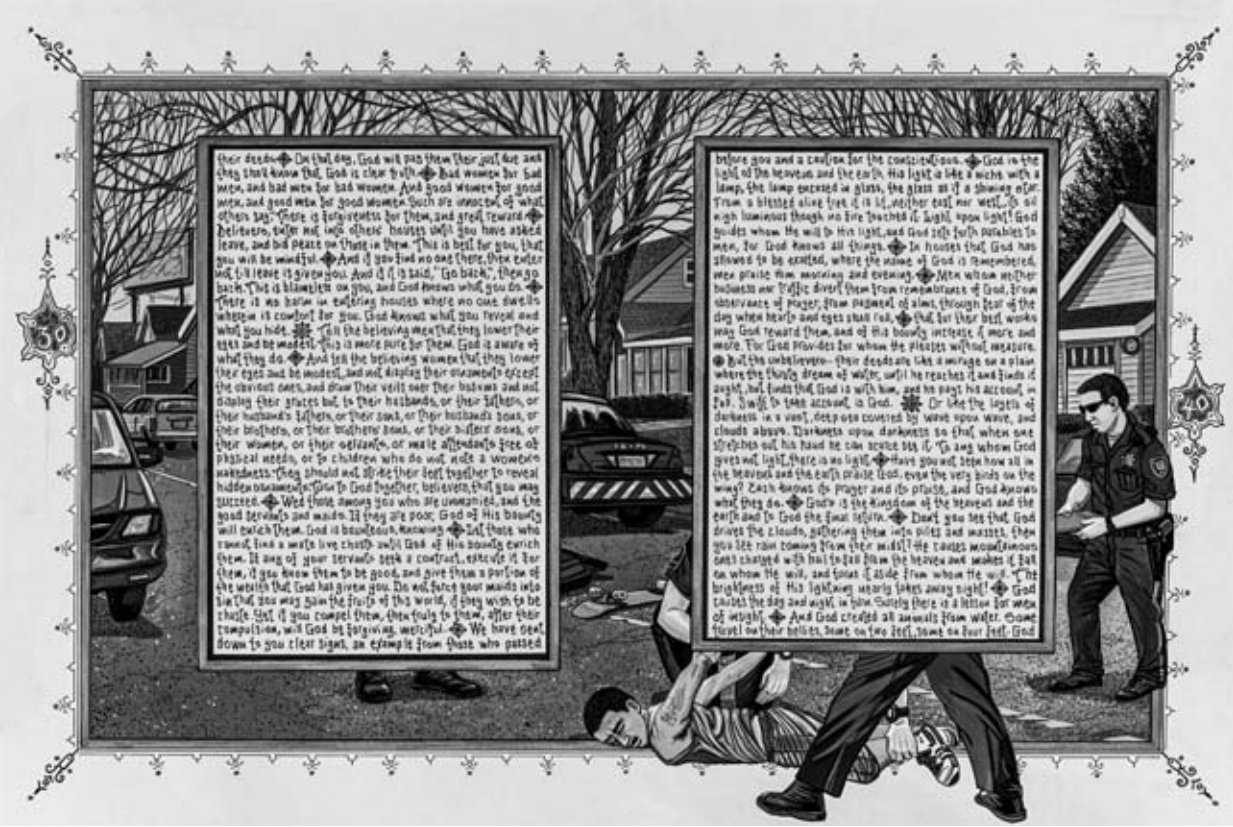 their deeds. On that day, God will pay them their just due and
they shall know that God is clear truth. Bad women for bad
men, and bad men for bad women. And good women for good
men, and good men for good women. Such are innocent of what
others say. There is forgiveness for them, and great reward.
Believers, enter not into others' houses until you have asked
leave, and bid peace on those in them. This is best for you, that
you will be mindful. And if you find no one there, then enter
not till leave is given you. And if it is said, "Go back", then go
back. This is blameless on you, and God knows what you do.
There is no harm in entering houses where no one dwells
wherein is comfort for you. God knows what you reveal and
what you hide. Tell the believing men that they lower their
eyes and be modest. This is more pure for them. God is aware of
what they do. And tell the believing women that they lower
their eyes and be modest, and not display their ornaments except
the obvious ones, and draw their veils over their bosoms and not
display their graces but to their husbands, or their fathers, or
their husband's fathers, or their sons, or their husband's sons, or
their brothers, or their brothers' sons, or their sisters' sons, or
their women, or their servants, or male attendants free of
physical needs, or to children who do not note a women's
nakedness. They should not strike their feet together to reveal
hidden ornaments. Turn to God together, believers, that you may
succeed. Wed those among you who are unmarried, and the
good servants and maids. If they are poor, God of His bounty
will enrich them. God is bounteous, knowing. Let those who
cannot find a mate live chaste until God of His bounty enrich
them. If any of your servants seek a contract, execute it for
them, if you know them to be good, and give them a portion of
the wealth that God has given you. Do not force your maids into
sin that you may gain the fruits of this world, if they wish to be
chaste. Yet if you compel them, then truly to them, after their
compulsion, will God be forgiving, merciful. We have sent
down to you clear signs, an example from those who passed
before you and a caution for the conscientious. God is the
light of the heavens and the earth. His light is like a niche with a
lamp, the lamp encased in glass, the glass as if a shining star.
From a blessed olive tree it is lit, neither east nor west, its oil
nigh luminous though no fire touched it. Light upon light! God
guides whom He will to His light, and God sets forth parables to
men, for God knows all things. In houses that God has
allowed to be exalted, where the name of God is remembered,
men praise Him morning and evening. Men whom neither
business nor traffic divert them from remembrance of God, from
observance of prayer, from payment of alms, through fear of the
day when hearts and eyes shall roll, that for their best works
may God reward them, and of His bounty increase it more and
more. For God provides for whom He pleases without measure.
But the unbelievers– their deeds are like a mirage on a plain
where the thirsty dream of water, until he reaches it and finds it
aught, but finds that God is with him, and he pays his account in
full. Swift to take account is God. Or like the layers of
darkness in a vast, deep sea covered by wave upon wave, and
clouds above. Darkness upon darkness so that when one
stretches out his hand he can scarce see it. To any whom God
gives not light, there is no light. Have you not seen how all in
the heavens and the earth praise God, even the very birds on the
wing? Each knows its prayer and its praise, and God knows
what they do. God's is the kingdom of the heavens and the
earth and to God the final return. Don't you see that God
drives the clouds, gathering them into piles and masses, then
you see rain coming from their midst? He causes mountainous
ones charged with hail to fall from the heaven and makes it fall
on whom He will, and turns it aside from whom He will. The
brightness of His lightning nearly takes away sight! God
causes the day and night in turn. Surely there is a lesson for men
of insight. And God created all animals from water. Some
travel on their bellies, some on two feet, some on four feet. God
30
40